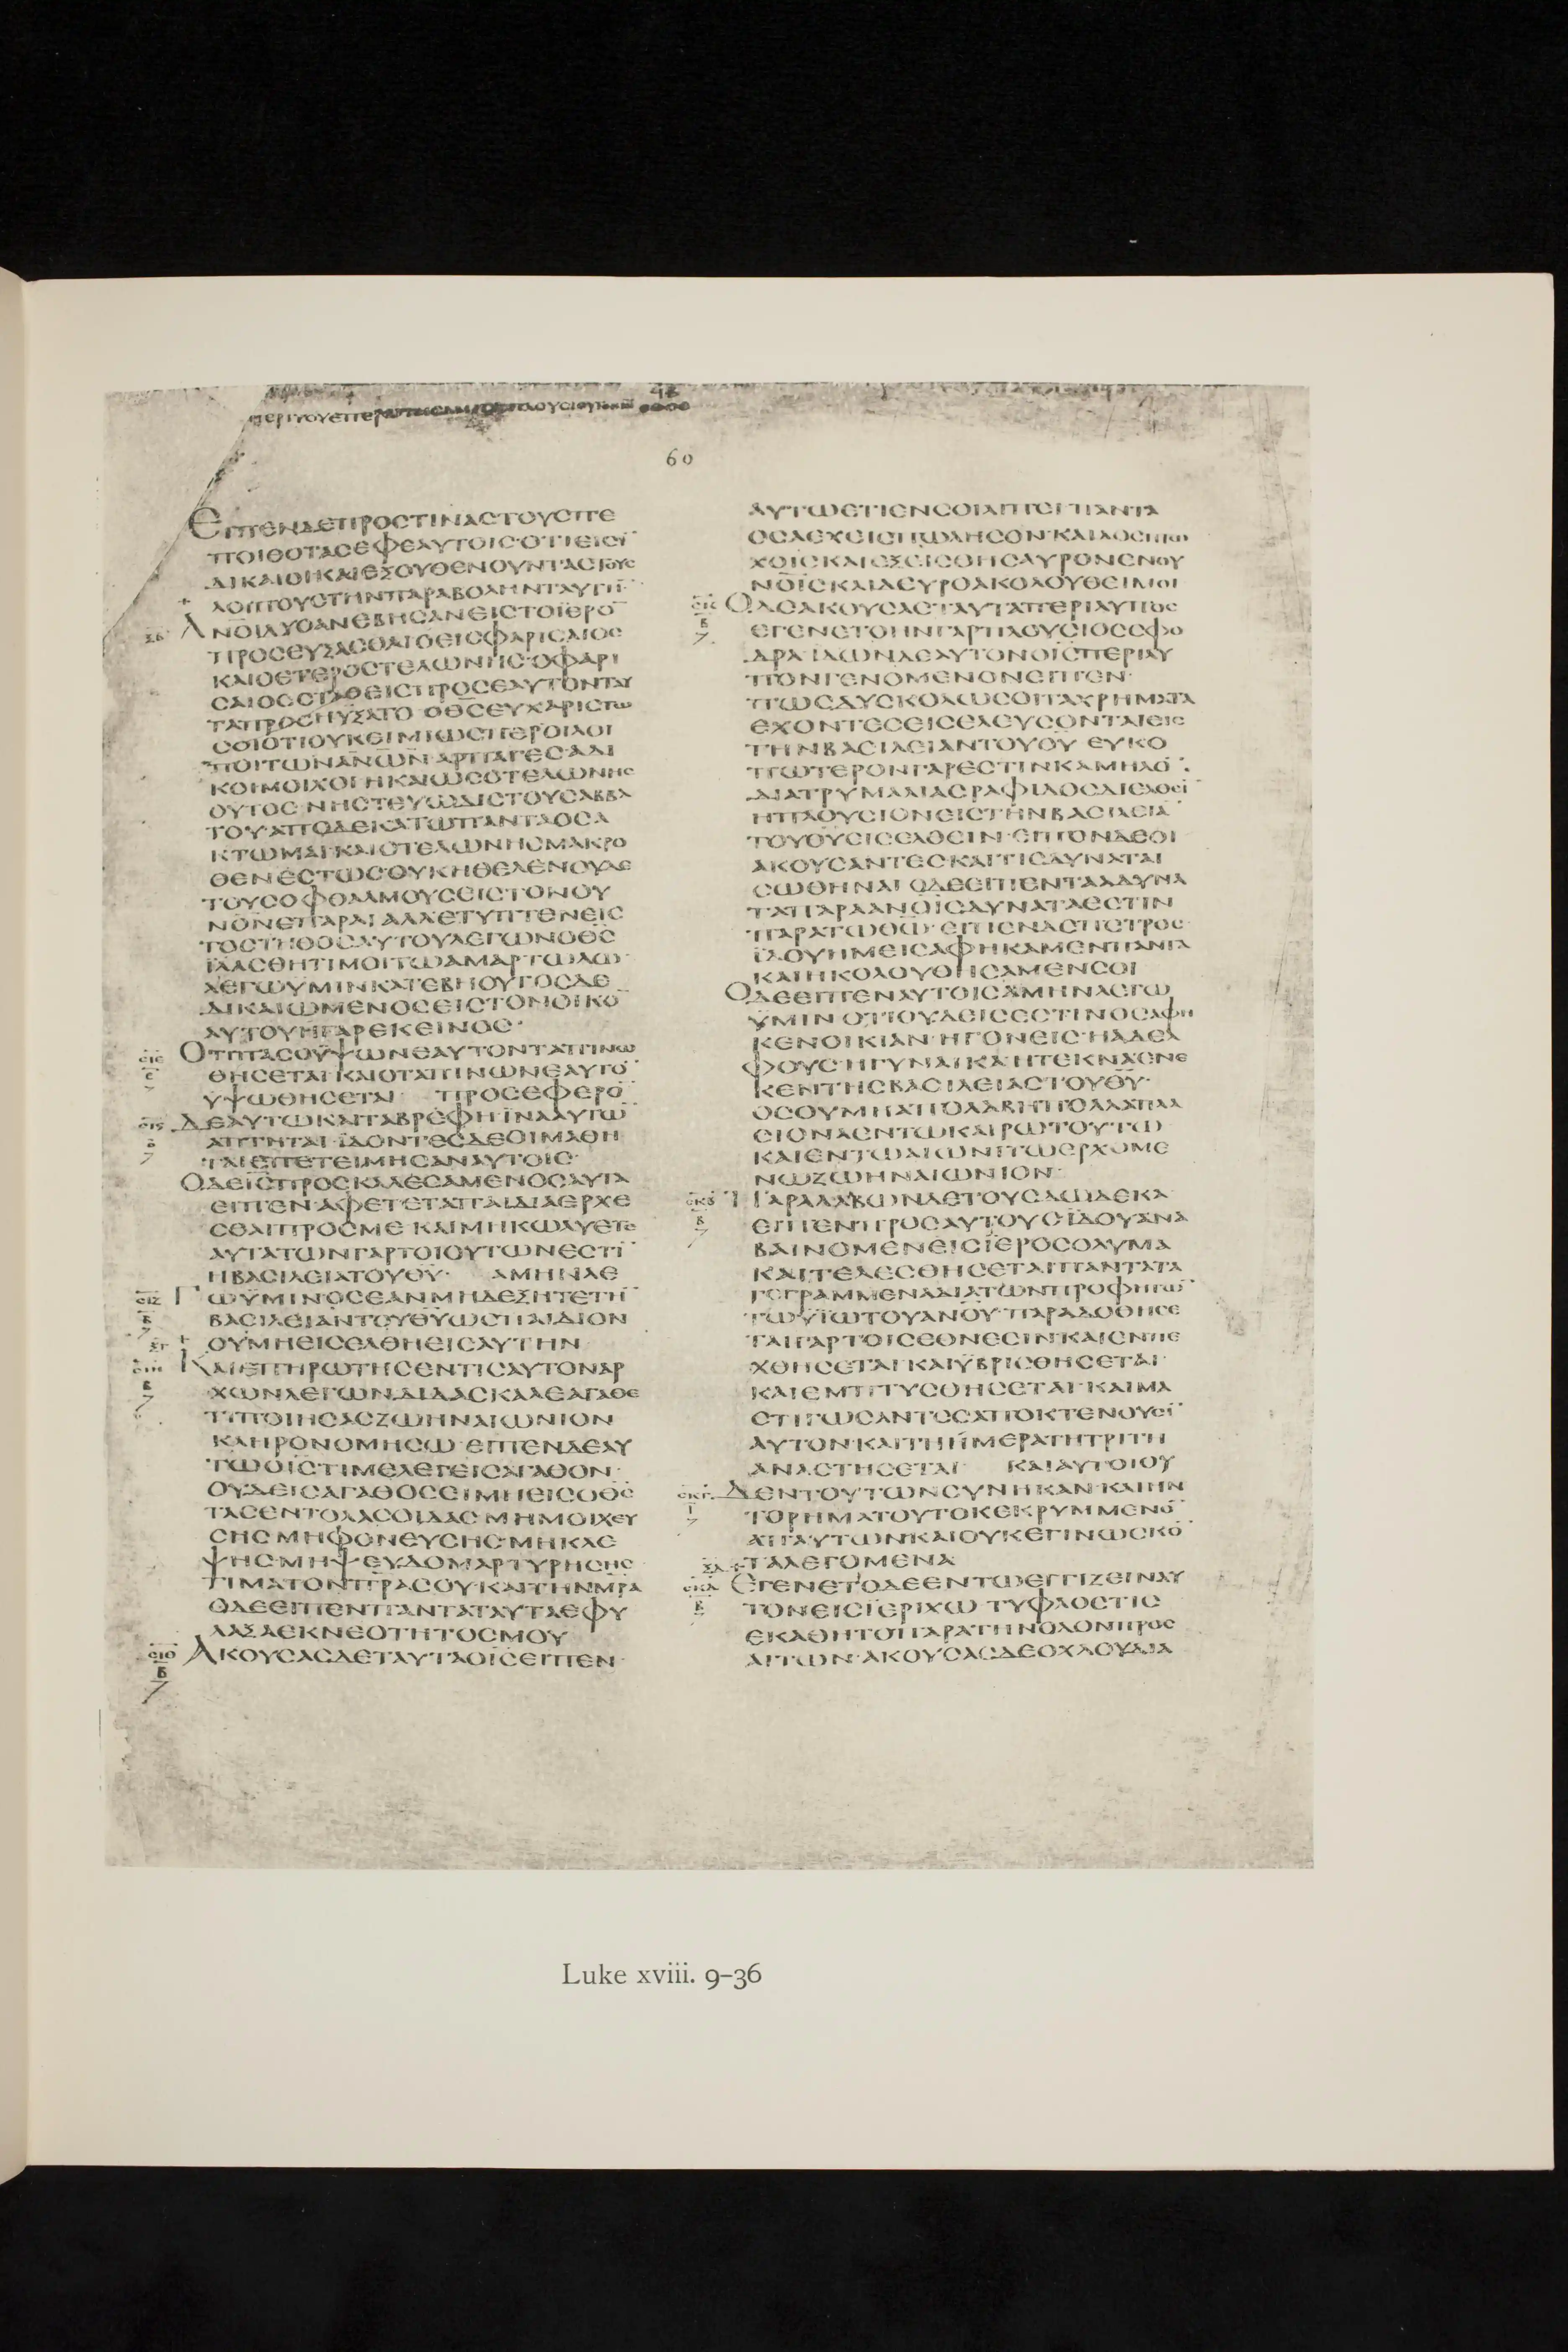 60
ΕΙΠΕΝΔΕΠΡΟΣΤΙΝΑΣΤΟΥΣΠΕ
ΠΟΙΘΟΤΑΣΕΦΕΑΥΤΟΙΣΟΤΙΕΙΣΙ¯
ΔΙΚΑΙΟΙ·ΚΑΙΕΞΟΥΘΕΝΟΥΝΤΑΣΤΟΥΣ
ΛΟΙΠΟΥΣΤΗΝΠΑΡΑΒΟΛΗΝΤΑΥΤΗ¯
ξβ ΑΝΟΙΔΥΟΑΝΕΒΗΣΑΝΕΙΣΤΟΪΕΡΟ¯
ΠΡΟΣΕΥΞΑΣΘΑΙΟΕΙΣΦΑΡΙΣΑΙΟΣ
ΚΑΙΟΕΤΕΡΟΣΤΕΛΩΝΗΣ·ΟΦΑΡΙ
ΣΑΙΟΣΣΤΑΘΕΙΣΠΡΟΣΕΑΥΤΟΝΤΑΥ
ΤΑΠΡΟΣΗΥΞΑΤΟ·ΟΘΣΕΥΧΑΡΙΣΤΩ
ΣΟΙΟΤΙΟΥΚΕΙΜΙΩΣΠΕΡΟΙΛΟΙ
ΠΟΙΤΩΝΑΝΩΝ·ΑΡΠΑΓΕΣ·ΑΔΙ
ΚΟΙ·ΜΟΙΧΟΙ·ΗΚΑΙΩΣΟΤΕΛΩΝΗΣ
ΟΥΤΟΣ·ΝΗΣΤΕΥΩΔΙΣΤΟΥΣΑΒΒΑ
ΤΟΥ·ΑΠΟΔΕΚΑΤΩΠΑΝΤΑΟΣΑ
ΚΤΩΜΑΙ·ΚΑΙΟΤΕΛΩΝΗΣΜΑΚΡΟ
ΘΕΝΕΣΤΩΣΟΥΚΗΘΕΛΕΝΟΥΔΕ
ΤΟΥΣΟΦΘΑΛΜΟΥΣΕΙΣΤΟΝΟΥ
ΝΟΝΕΠΑΡΑΙ·ΑΛΛΕΤΥΠΤΕΝΕΙΣ
ΤΟΣΤΗΘΟΣΑΥΤΟΥΛΕΓΩΝΟΘΣ
ΪΛΑΣΘΗΤΙΜΟΙΤΩΑΜΑΡΤΩΛΩ·
ΛΕΓΩΫΜΙΝΚΑΤΕΒΗΟΥΤΟΣΔΕ
ΔΙΚΑΙΩΜΕΝΟΣΕΙΣΤΟΝΟΙΚΟ¯
ΑΥΤΟΥΗΓΑΡΕΚΕΙΝΟΣ·
σιε ε ΟΤΙΠΑΣΟΫΨΩΝΕΑΥΤΟΝΤΑΠΙΝΩ
ΘΗΣΕΤΑΙ·ΚΑΙΟΤΑΠΙΝΩΝΕΑΥΤΟ¯
ΥΨΩΘΗΣΕΤΑΙ ΠΡΟΣΕΦΕΡΟ¯
σις ΔΕΑΥΤΩΚΑΙΤΑΒΡΕΦΗ·ΪΝΑΑΥΤΩ¯
ΑΠΤΗΤΑΙ·ΪΔΟΝΤΕΣΔΕΟΙΜΑΘΗ
ΤΑΙΕΠΕΤΕΙΜΗΣΑΝΑΥΤΟΙΣ·
ΟΔΕΙΣΠΡΟΣΚΑΛΕΣΑΜΕΝΟΣΑΥΤΑ
ΕΙΠΕΝ·ΑΦΕΤΕΤΑΠΑΙΔΙΑΕΡΧΕ
ΣΘΑΙΠΡΟΣΜΕ·ΚΑΙΜΗΚΩΛΥΕΤΕ
ΑΥΤΑΤΩΝΓΑΡΤΟΙΟΥΤΩΝΕΣΤΙ¯
ΗΒΑΣΙΛΕΙΑΤΟΥΘΥ· ΑΜΗΝΛΕ
σιζ β ΓΩΫΜΙΝ·ΟΣΕΑΝΜΗΔΕΞΗΤΕΤΗ¯
ΒΑΣΙΛΕΙΑΝΤΟΥΘΥΩΣΠΑΙΔΙΟΝ
ξγ ΟΥΜΗΕΙΣΕΛΘΗΕΙΣΑΥΤΗΝ
σιη β ΚΑΙΕΠΗΡΩΤΗΣΕΝΤΙΣΑΥΤΟΝΑΡ
ΧΩΝΛΕΓΩΝ·ΔΙΔΑΣΚΑΛΕΑΓΑΘΕ
ΤΙΠΟΙΗΣΑΣΖΩΗΝΑΙΩΝΙΟΝ
ΚΛΗΡΟΝΟΜΗΣΩ·ΕΙΠΕΝΔΕΑΥ
ΤΩΟΙΣΤΙΜΕΛΕΓΕΙΣΑΓΑΘΟΝ·
ΟΥΔΕΙΣΑΓΑΘΟΣΕΙΜΗΕΙΣΟΘΣ
ΤΑΣΕΝΤΟΛΑΣΟΙΔΑΣ·ΜΗΜΟΙΧΕΥ
ΣΗΣ·ΜΗΦΟΝΕΥΣΗΣ·ΜΗΚΛΕ
ΨΗΣ·ΜΗΨΕΥΔΟΜΑΡΤΥΡΗΣΗΣ·
ΤΙΜΑΤΟΝΠΡΑΣΟΥ·ΚΑΙΤΗΝΜΡΑ
ΟΔΕΕΙΠΕΝΠΑΝΤΑΤΑΥΤΑΕΦΥ
ΛΑΞΑΕΚΝΕΟΤΗΤΟΣΜΟΥ
σιθ β ΑΚΟΥΣΑΣΔΕΤΑΥΤΑΟΙΣΕΙΠΕΝ·
ΑΥΤΩΕΤΙΕΝΣΟΙΛΙΠΕΙ·ΠΑΝΤΑ
ΟΣΑΕΧΕΙΣΠΩΛΗΣΟΝ·ΚΑΙΔΟΣΠΤΩ
ΧΟΙΣΚΑΙΕΞΕΙΣΘΗΣΑΥΡΟΝΕΝΟΥ
ΝΟΙΣΚΑΙΔΕΥΡΟΑΚΟΛΟΥΘΕΙΜΟΙ
β ΟΔΕΑΚΟΥΣΑΣΤΑΥΤΑΠΕΡΙΛΥΠΟΣ
ΕΓΕΝΕΤΟ·ΗΝΓΑΡΠΛΟΥΣΙΟΣΣΦΟ
ΔΡΑ·ΪΔΩΝΔΕΑΥΤΟΝΟΙΣΠΕΡΙΛΥ
ΠΟΝΓΕΝΟΜΕΝΟΝΕΙΠΕΝ·
ΠΩΣΔΥΣΚΟΛΩΣΟΙΤΑΧΡΗΜΑΤΑ
ΕΧΟΝΤΕΣΕΙΣΕΛΕΥΣΟΝΤΑΙΕΙΣ
ΤΗΝΒΑΣΙΛΕΙΑΝΤΟΥΘΥ·ΕΥΚΟ
ΠΩΤΕΡΟΝΓΑΡΕΣΤΙΝΚΑΜΗΛΟ¯
ΔΙΑΤΡΥΜΑΛΙΑΣΡΑΦΙΔΟΣΔΙΕΛΘΕΙ¯
ΗΠΛΟΥΣΙΟΝΕΙΣΤΗΝΒΑΣΙΛΕΙΑ¯
ΤΟΥΘΥΕΙΣΕΛΘΕΙΝ·ΕΙΠΟΝΔΕΟΙ
ΑΚΟΥΣΑΝΤΕΣΚΑΙΤΙΣΔΥΝΑΤΑΙ
ΣΩΘΗΝΑΙ·ΟΔΕΕΙΠΕΝΤΑΑΔΥΝΑ
ΤΑΠΑΡΑΑΝΟΙΣΔΥΝΑΤΑΕΣΤΙΝ
ΠΑΡΑΤΩΘΩ·ΕΙΠΕΝΔΕΠΕΤΡΟΣ·
ΪΔΟΥΗΜΕΙΣΑΦΗΚΑΜΕΝΠΑΝΤΑ
ΚΑΙΗΚΟΛΟΥΘΗΣΑΜΕΝΣΟΙ
ΟΔΕΕΙΠΕΝΑΥΤΟΙΣΑΜΗΝΛΕΓΩ
ΫΜΙΝ·ΟΤΙΟΥΔΕΙΣΕΣΤΙΝΟΣΑΦΗ
ΚΕΝΟΙΚΙΑΝ·ΗΓΟΝΕΙΣ·ΗΑΔΕΛ
ΦΟΥΣ·ΗΓΥΝΑΙΚΑ·ΗΤΕΚΝΑΕΝΕ
ΚΕΝΤΗΣΒΑΣΙΛΕΙΑΣΤΟΥΘΥ·
ΟΣΟΥΜΗΑΠΟΛΑΒΗΠΟΛΛΑΠΛΑ
ΣΙΟΝΑΕΝΤΩΚΑΙΡΩΤΟΥΤΩ
ΚΑΙΕΝΤΩΑΙΩΝΙΤΩΕΡΧΟΜΕ
ΝΩΖΩΗΝΑΙΩΝΙΟΝ·
σκβ β ΠΑΡΑΛΑΒΩΝΔΕΤΟΥΣΔΩΔΕΚΑ
ΕΙΠΕΝΠΡΟΣΑΥΤΟΥΣ·ΪΔΟΥΑΝΑ
ΒΑΙΝΟΜΕΝΕΙΣΪΕΡΟΣΟΛΥΜΑ
ΚΑΙΤΕΛΕΣΘΗΣΕΤΑΙΠΑΝΤΑΤΑ
ΓΕΓΡΑΜΜΕΝΑΔΙΑΤΩΝΠΡΟΦΗΤΩ¯
ΤΩΥΪΩΤΟΥΑΝΟΥ·ΠΑΡΑΔΟΘΗΣΕ
ΤΑΙΓΑΡΤΟΙΣΕΘΝΕΣΙΝ·ΚΑΙΕΝΠΕ
ΧΘΗΣΕΤΑΙ·ΚΑΙΫΒΡΙΣΘΗΣΕΤΑΙ·
ΚΑΙΕΜΠΤΥΣΘΗΣΕΤΑΙ·ΚΑΙΜΑ
ΣΤΙΓΩΣΑΝΤΕΣΑΠΟΚΤΕΝΟΥΣΙ¯
ΑΥΤΟΝ·ΚΑΙΤΗΗΜΕΡΑΤΗΤΡΙΤΗ
ΑΝΑΣΤΗΣΕΤΑΙ ΚΑΙΑΥΤΟΙΟΥ
σκγ ι ΔΕΝΤΟΥΤΩΝΣΥΝΗΚΑΝ·ΚΑΙΗΝ
ΤΟΡΗΜΑΤΟΥΤΟΚΕΚΡΥΜΜΕΝΟ¯
ΑΠΑΥΤΩΝΚΑΙΟΥΚΕΓΙΝΩΣΚΟ¯
ξδ ΤΑΛΕΓΟΜΕΝΑ
σκδ β ΕΓΕΝΕΤΟΔΕΕΝΤΩΕΓΓΙΖΕΙΝΑΥ
ΤΟΝΕΙΣΪΕΡΙΧΩ·ΤΥΦΛΟΣΤΙΣ
ΕΚΑΘΗΤΟΠΑΡΑΤΗΝΟΔΟΝΠΡΟΣ
ΑΙΤΩΝ·ΑΚΟΥΣΑΣΔΕΟΧΛΟΥΔΙΑ
Luke xviii. 9–36